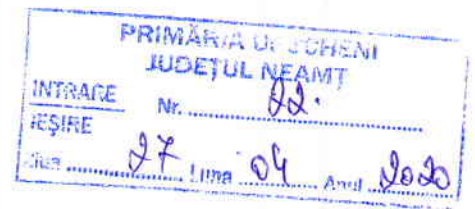 PRIMĂRIA
JUDEȚUL NEAMȚ
INTRARE
IEȘIRE
Nr. 22.
Ziua 27 Luna 04 Anul 2020